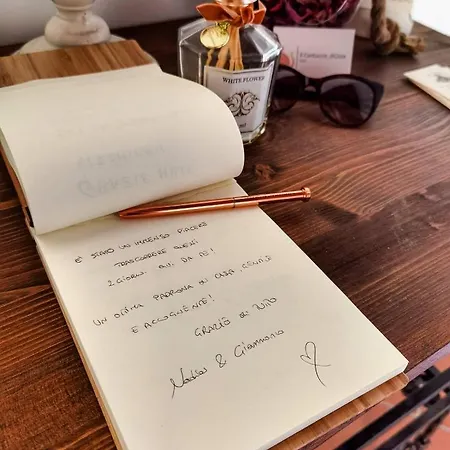 WHITE FLOWER
È STATO UN IMMENSO PIACERE
TRASCORRERE QUESTI
2 GIORNI QUI DA TE!
UN OTTIMA PADRONA DI CASA, GENTILE
E ACCOGLIENTE!
GRAZIE DI TUTTO
& Giammario